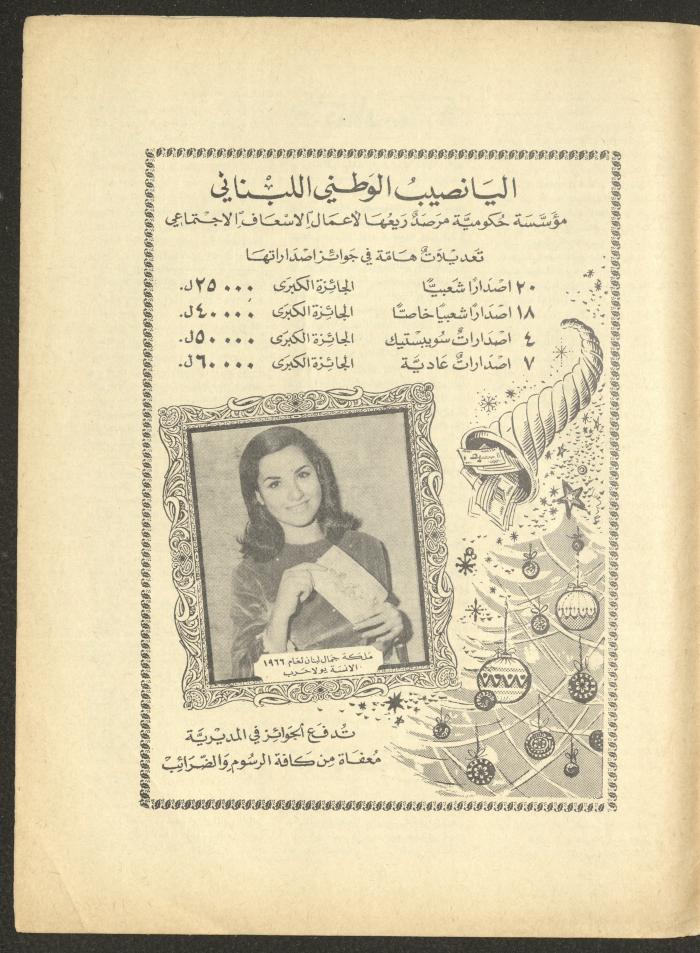 اليَانصيبُ الوَطني اللبْناني
مؤسَّسَة حُكوميَّة مرَصَدٌ رَيعُهَا لأعمَالِ الاسْعَافِ الاجتمَاعي
تَعديلاتٌ هَامَّة في جَوائز اصْدَاراتهَا
٢٠ اصْدَارًا شَعبيًّا الجَائزَة الكبرَى ٢٥٠٠٠ ل.
١٨ اصْدَارًا شَعبيًا خَاصًّا الجَائزَة الكبرَى ٤٠٠٠٠ ل.
٤ اصْدَاراتٌ سُويبستيك الجَائزَة الكبرَى ٥٠٠٠٠ ل.
٧ اصْدَاراتٌ عَاديَّة الجَائزَة الكبرَى ٦٠٠٠٠ ل.
مَلكة جمَال لبنَان لعَام ١٩٦٦
الآنسَة يولا حَرب
تُدفَع الجَوائز في المديريَّة
مُعفَاة مِن كَافة الرسُوم وَالضّرائِب